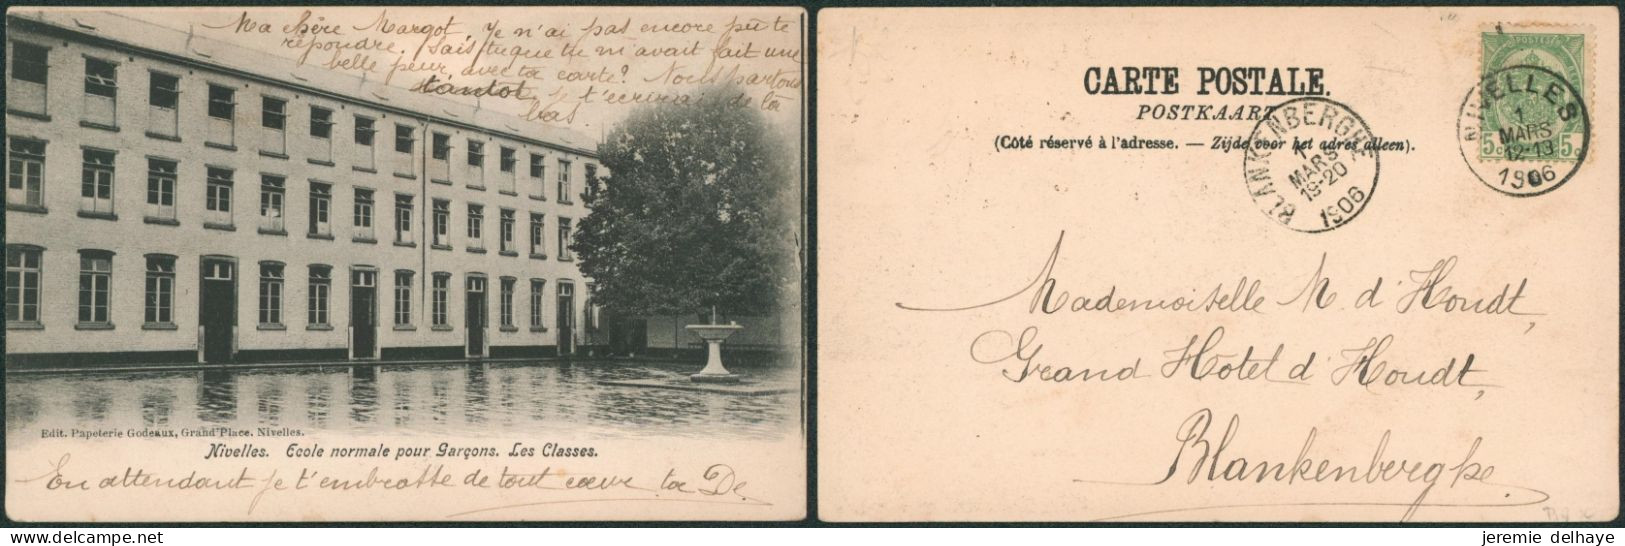 Ma chère Margot, Je n'ai pas encore pu te
répondre. Sais tu que tu m'avait fait une
belle peur avec ta carte? Nous partons
tantot je t'écrirai de là
bas.
Edit. Papeterie Godeaux, Grand'Place, Nivelles.
Nivelles. Ecole normale pour Garçons. Les Classes.
En attendant je t'embrasse de tout cœur ta De
CARTE POSTALE.
POSTKAART
(Côté réservé à l'adresse. — Zijde voor het adres alleen).
POSTES
5c 5c
NIVELLES
1
MARS
12-13
1906
BLANKENBERGHE
1
MARS
19-20
1906
Mademoiselle M d'Houdt,
Grand Hotel d'Houdt,
Blankenberghe.
jeremie delhaye